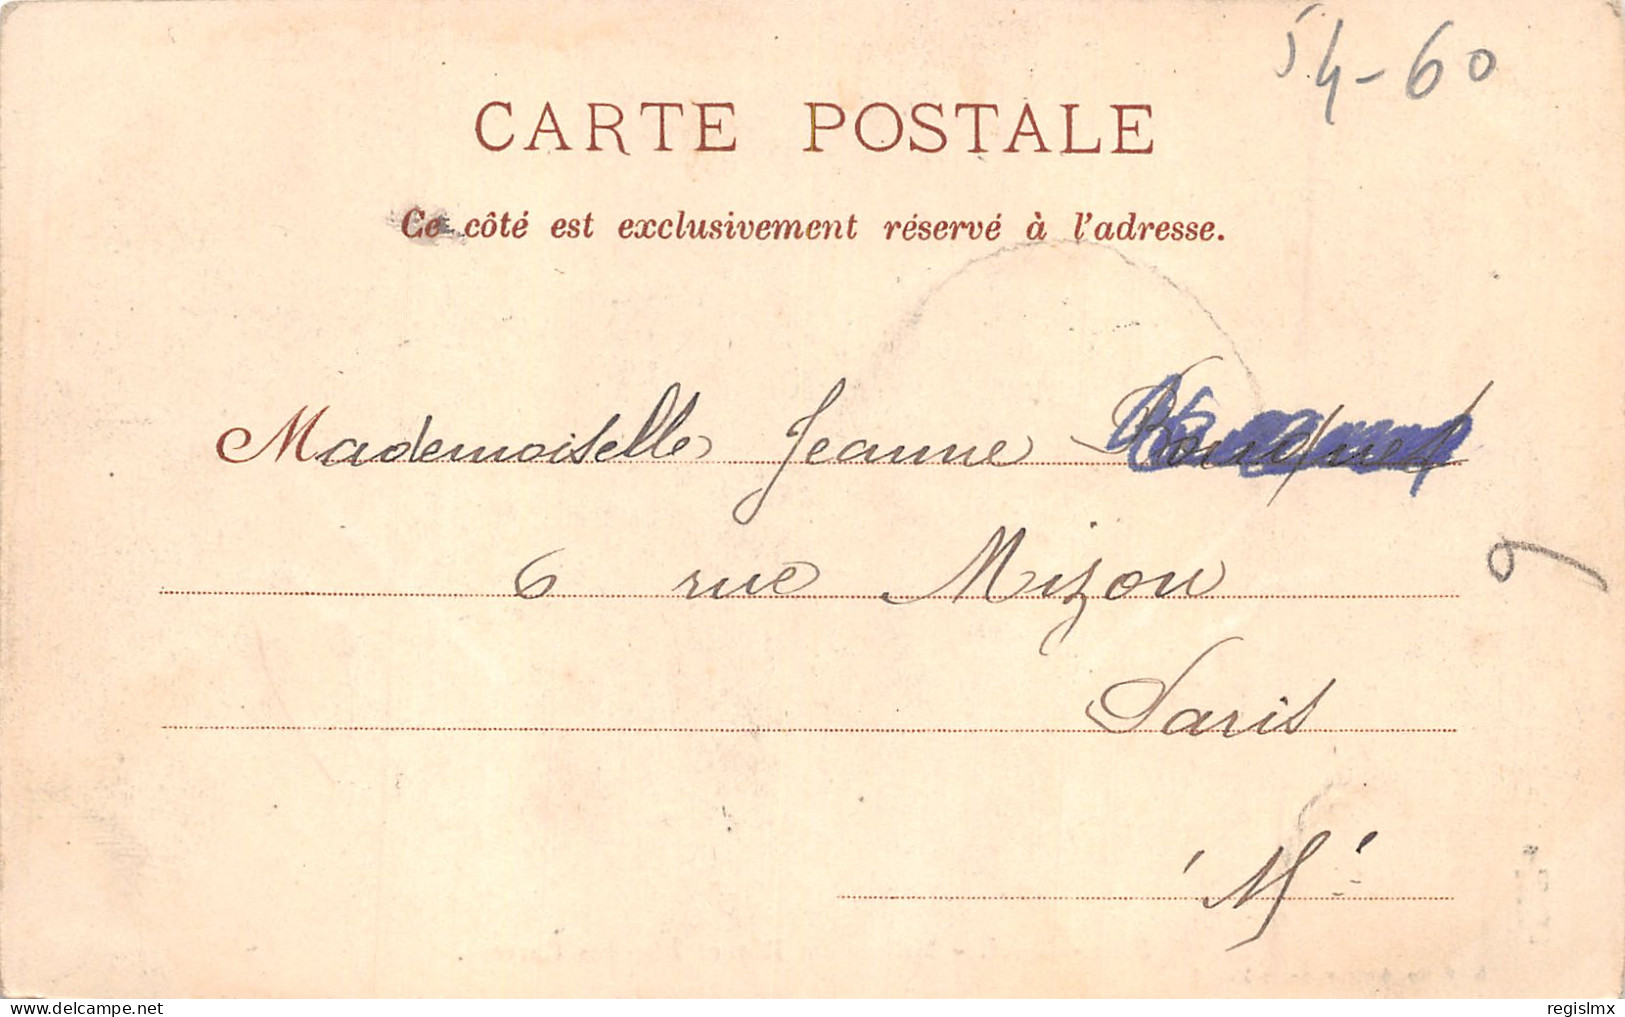 54-60
CARTE POSTALE
Ce côté est exclusivement réservé à l'adresse.
Mademoiselle Jeanne
6 rue Mizon
Paris
regislmx